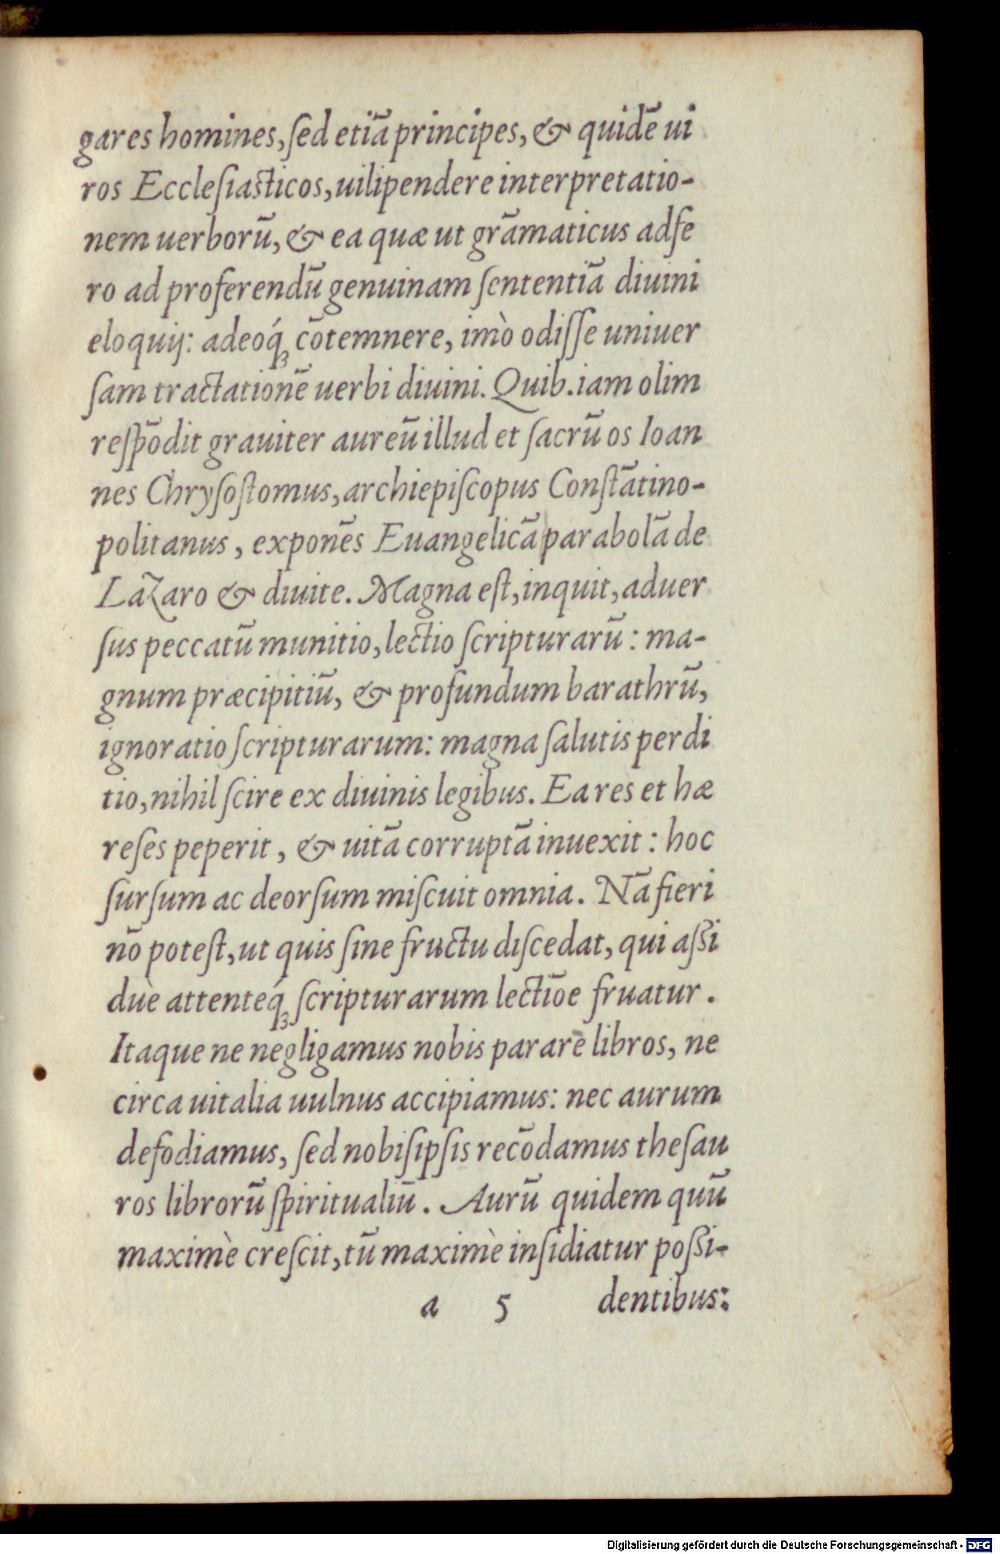 gares homines, ſed etiã principes, & quidẽ ui
ros Eccleſiaſticos, uilipendere interpretatio-
nem uerborũ, & ea quæ ut grãmaticus adfe
ro ad proferendũ genuinam ſententiã diuini
eloquij: adeoq́ꝫ cõtemnere, imò odiſſe uniuer
ſam tractationẽ uerbi diuini. Quib. iam olim
reſpõdit grauiter aureũ illud et ſacrũ os Ioan
nes Chryſoſtomus, archiepiſcopus Conſtãtino-
politanus, exponẽs Euangelicã parabolã de
Lazaro & diuite. Magna eſt, inquit, aduer
ſus peccatũ munitio, lectio ſcripturarũ: ma-
gnum præcipitiũ, & profundum barathrũ,
ignoratio ſcripturarum: magna ſalutis perdi
tio, nihil ſcire ex diuinis legibus. Ea res et hæ
reſes peperit, & uitã corruptã inuexit: hoc
ſurſum ac deorſum miſcuit omnia. Nã fieri
nõ poteſt, ut quis ſine fructu diſcedat, qui aſſi
duè attenteq́ꝫ ſcripturarum lectiõe fruatur.
Itaque ne negligamus nobis parare libros, ne
circa uitalia uulnus accipiamus: nec aurum
defodiamus, ſed nobiſipſis recõdamus theſau
ros librorũ ſpiritualiũ. Aurũ quidem quũ
maximè creſcit, tũ maximè inſidiatur poſſi-
a 5 dentibus:
Digitalisierung gefördert durch die Deutsche Forschungsgemeinschaft - DFG